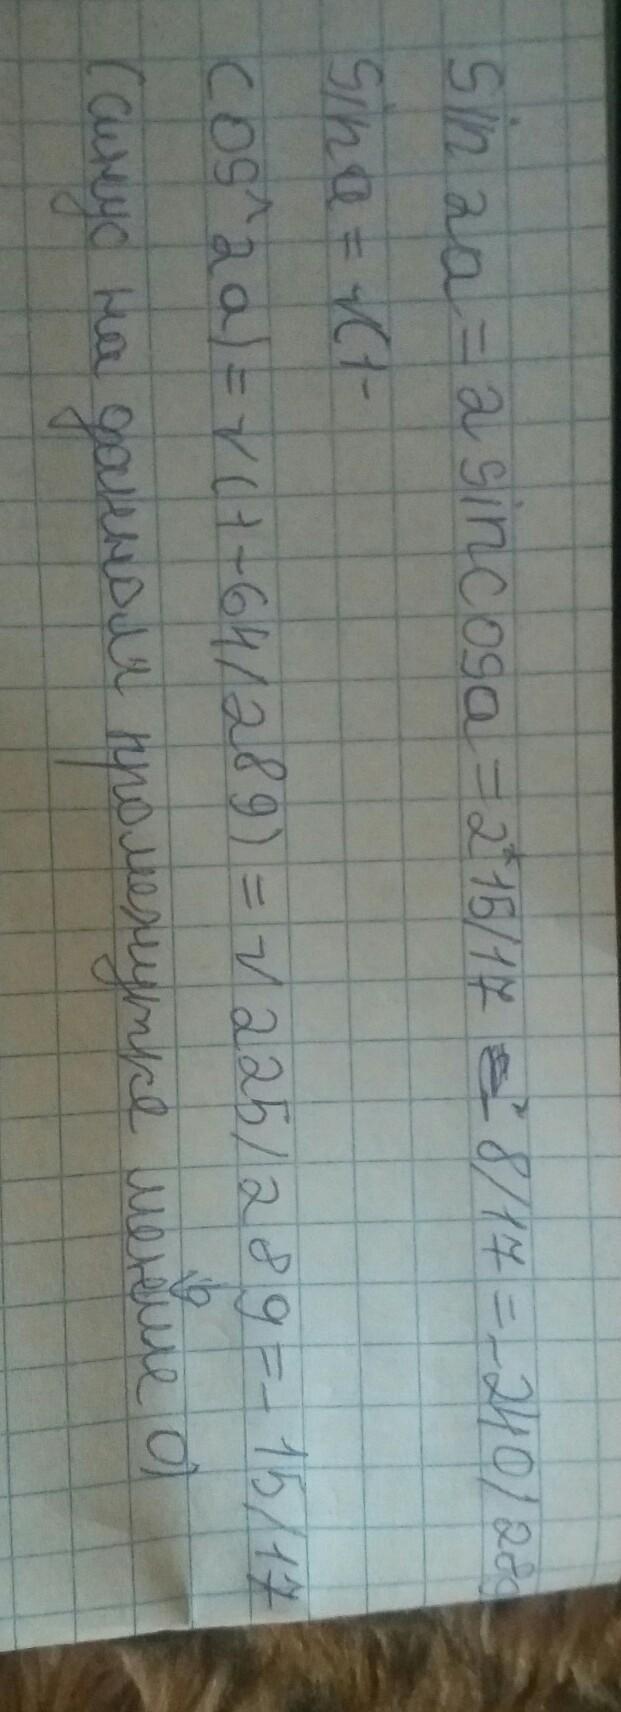 Sin 2a = 2 sin cos a = 2*15/17 *8/17 = -240/289
Sin a = √(1-
cos^2a) = √(1-64/289) = √225/289 = -15/17
(синус на данном промежутке меньше 0)